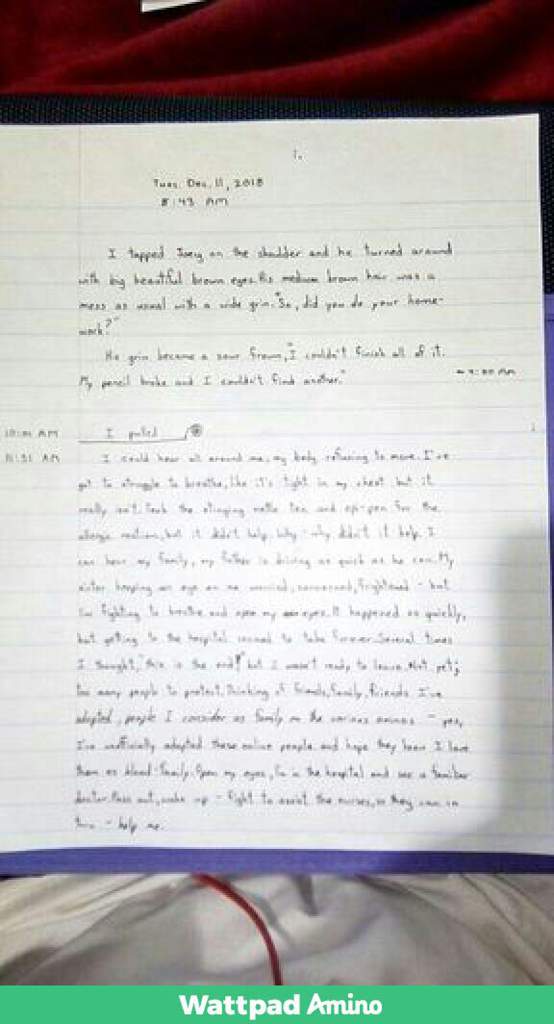 1.
Tues. Dec. 11, 2018
8:43 AM
I tapped Joey on the shoulder and he turned around
with big beautiful brown eyes. His medium brown hair was a
mess as usual with a wide grin. "So, did you do your home-
work?"
His grin became a sour frown, "I couldn't finish all of it.
My pencil broke and I couldn't find another."
AM
AM
I pulled
I could hear all around me, my body refusing to move. I've
got to struggle to breathe, like it's tight in my chest but it
really isn't. Took the stinging nettle tea and epi-pen for the
allergic reaction, but it didn't help. Why - why didn't it help. I
can hear my family, my father is driving as quick as he can. My
sister keeping an eye on me worried, concerned, frightened - but
I'm fighting to breathe and open my eyes. It happened so quickly,
but getting to the hospital seemed to take forever. Several times
I thought, "this is the end" but I wasn't ready to leave. Not yet;
too many people to protect. Thinking of friends, family, friends I've
adopted, people I consider as family on the various aminos - yes,
I've unofficially adopted these online people and hope they know I love
them as blood-family. Open my eyes, I'm in the hospital and see a familiar
doctor. Pass out, wake up - fight to assist the nurses, so they can in
turn - help me.
Wattpad Amino